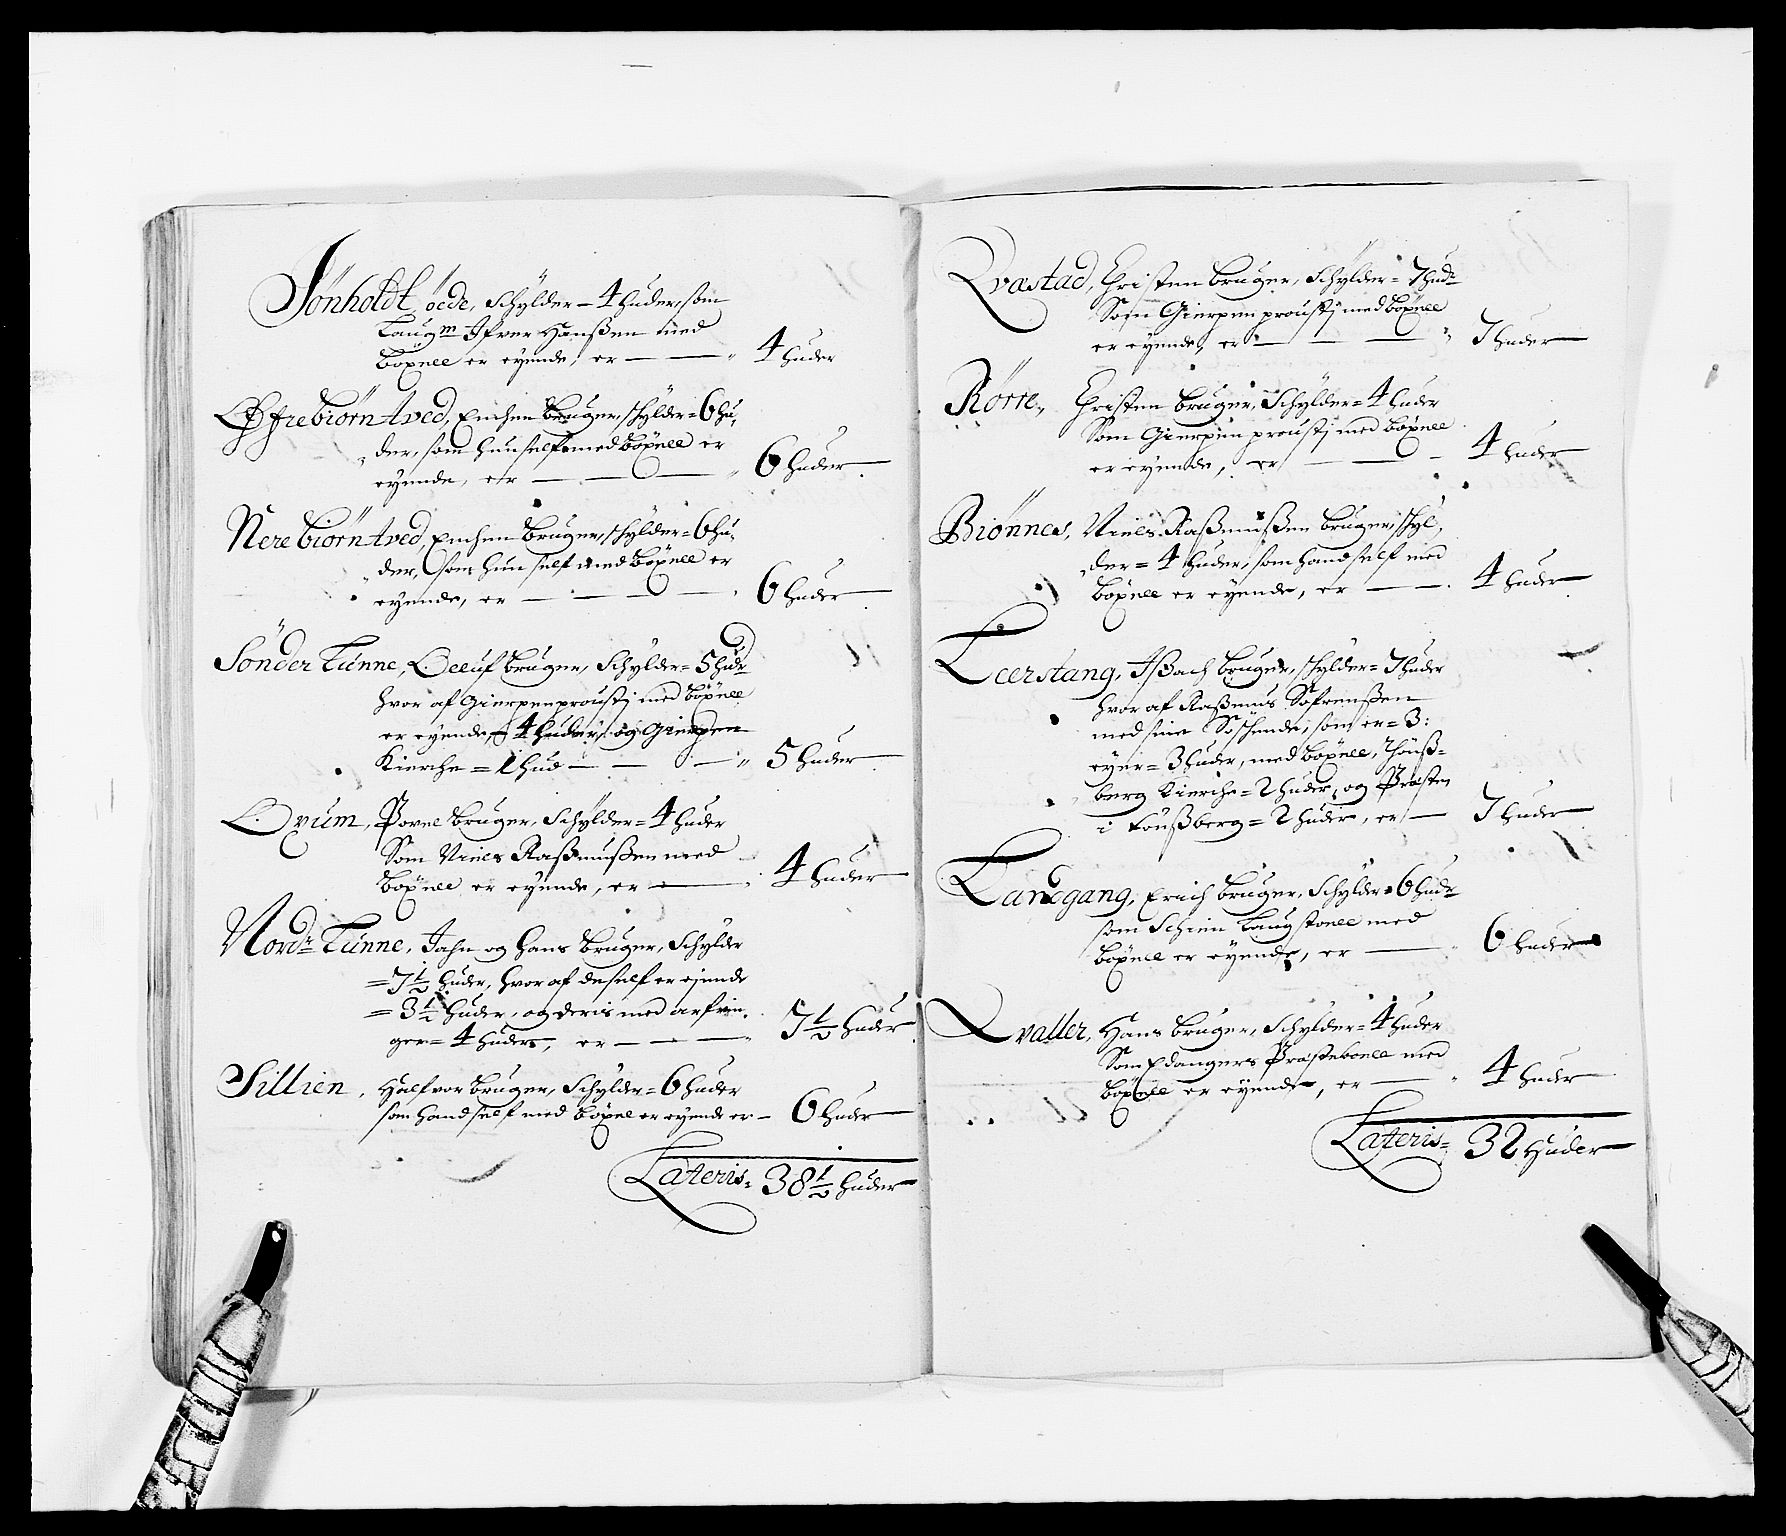 Jönholdt, öede, Schÿlder = 4 huder, som
Laugm Ifver Hanßen med
böxell er eyende, er — — 4 huder
Øffrebiörntved, Enchen bruger, schylder = 6 hu,
der, som hun self med böxell er
eyende, er — — 6 huder
Nerebiörntved, Enchen bruger, schylder = 6 hu,
der, som hun self med böxell er
eyende, er — — — 6 huder
Sönder Tünne, Oeluf bruger, Schylder = 5 hudr
hvor af Gierpen proustj med böxell
er eyende, 4 huder, og Gierpen
Kierche = 1 hud — — 5 huder
Ovrum, Povel bruger, Schylder = 4 huder
Som Niels Raßmußen med
böxell er eyende, er — 4 huder
Nordr Tünne, Jahn og Hans bruger, Schylder
= 7½ huder, hvor af de self er ejende
= 3½ huder, og deris med arfvin,
ger = 4 huder, er — — — 7½ huder
Sillien, Halfvor bruger, Schylder = 6 huder
som hand self med böxel er eyende er — 6 huder
Lateris = 38½ huder
Qvastad, Christen bruger, Schÿlder = 7 hudr
Som Gierpen proustj med böxell
er eyende, er — — — 7 huder
Rörre, Christen bruger, Schylder = 4 huder
Som Gierpen proustj med böxell
er eyende, er — — 4 huder
Biönnes, Niels Raßmußen bruger, schyl,
der = 4 huder, som hand self med
böxell er eyende, er — — 4 huder
Leerstang, Ißach bruger, schylder = 7 huder
hvor af Raßmus Sofrenßen
med sine Söschende, som er = 3:
eyer = 3 huder, med böxell, Thönß-
berg Kierche = 2 huder, og Præsten
i Tönßberg = 2 huder, er — 7 huder
Landgang, Erich bruger, Schylder = 6 hudr
som Schien Laugstoell med
böxell er eyende, er — 6 huder
Qvaller, Hans bruger, Schylder = 4 huder
Som Edangers Præsteboell med
böxell er eyende, er — 4 huder
Lateris = 32 Huder